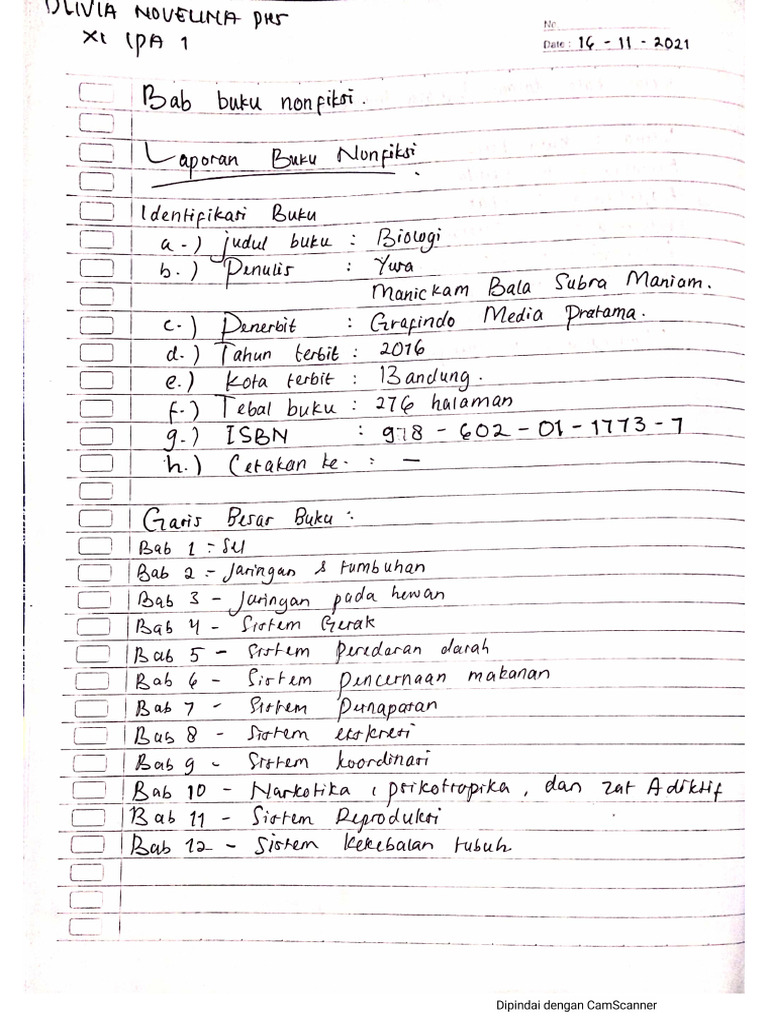 OLIVIA NOVELINA DHS
XI IPA 1
No
Date : 16 - 11 - 2021
Bab buku nonfiksi.
Laporan Buku Nonfiksi.
Identifikasi Buku
a.) judul buku : Biologi
b.) Penulis : Yura
Manickam Bala Subra Maniam.
c.) Penerbit : Grafindo Media Pratama.
d.) Tahun terbit : 2016
e.) Kota terbit : Bandung.
f.) Tebal buku : 276 halaman
g.) ISBN : 978 - 602 - 01 - 1773 - 7
h.) Cetakan ke. : -
Garis Besar Buku :
Bab 1 - Sel
Bab 2 - Jaringan & tumbuhan
Bab 3 - Jaringan pada hewan
Bab 4 - Sistem Gerak
Bab 5 - Sistem peredaran darah
Bab 6 - Sistem pencernaan makanan
Bab 7 - Sistem pernapasan
Bab 8 - Sistem ekskresi
Bab 9 - Sistem koordinasi
Bab 10 - Narkotika, psikotropika, dan zat Adiktif
Bab 11 - Sistem Reproduksi
Bab 12 - Sistem kekebalan tubuh
Dipindai dengan CamScanner